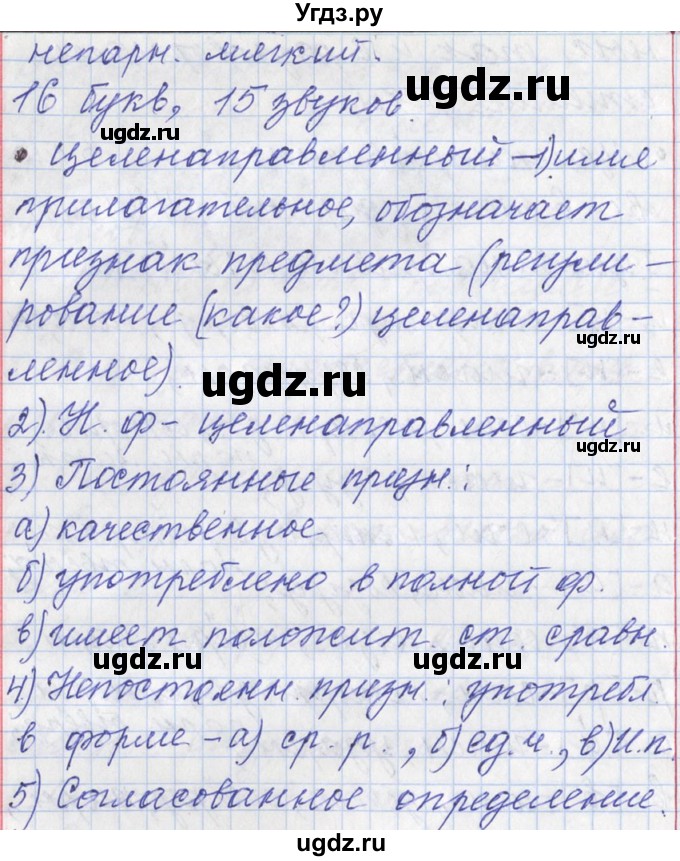 Угдз.ру
непарн. мягкий.
16 букв, 15 звуков.
• Целенаправленный – 1) имя
прилагательное, обозначает
признак предмета (регули-
рование (какое?) целенаправ-
ленное).
2) Н. ф – целенаправленный
3) Постоянные призн.:
а) качественное
б) употреблено в полной ф.
в) имеет положит. ст. сравн.
4) Непостоянн. призн.: употребл.
в форме – а) ср. р., б) ед. ч., в) И.п.
5) Согласованное определение.
ugdz.ru
ugdz.ru
ugdz.ru
ugdz.ru
ugdz.ru
ugdz.ru
ugdz.ru
ugdz.ru
ugdz.ru